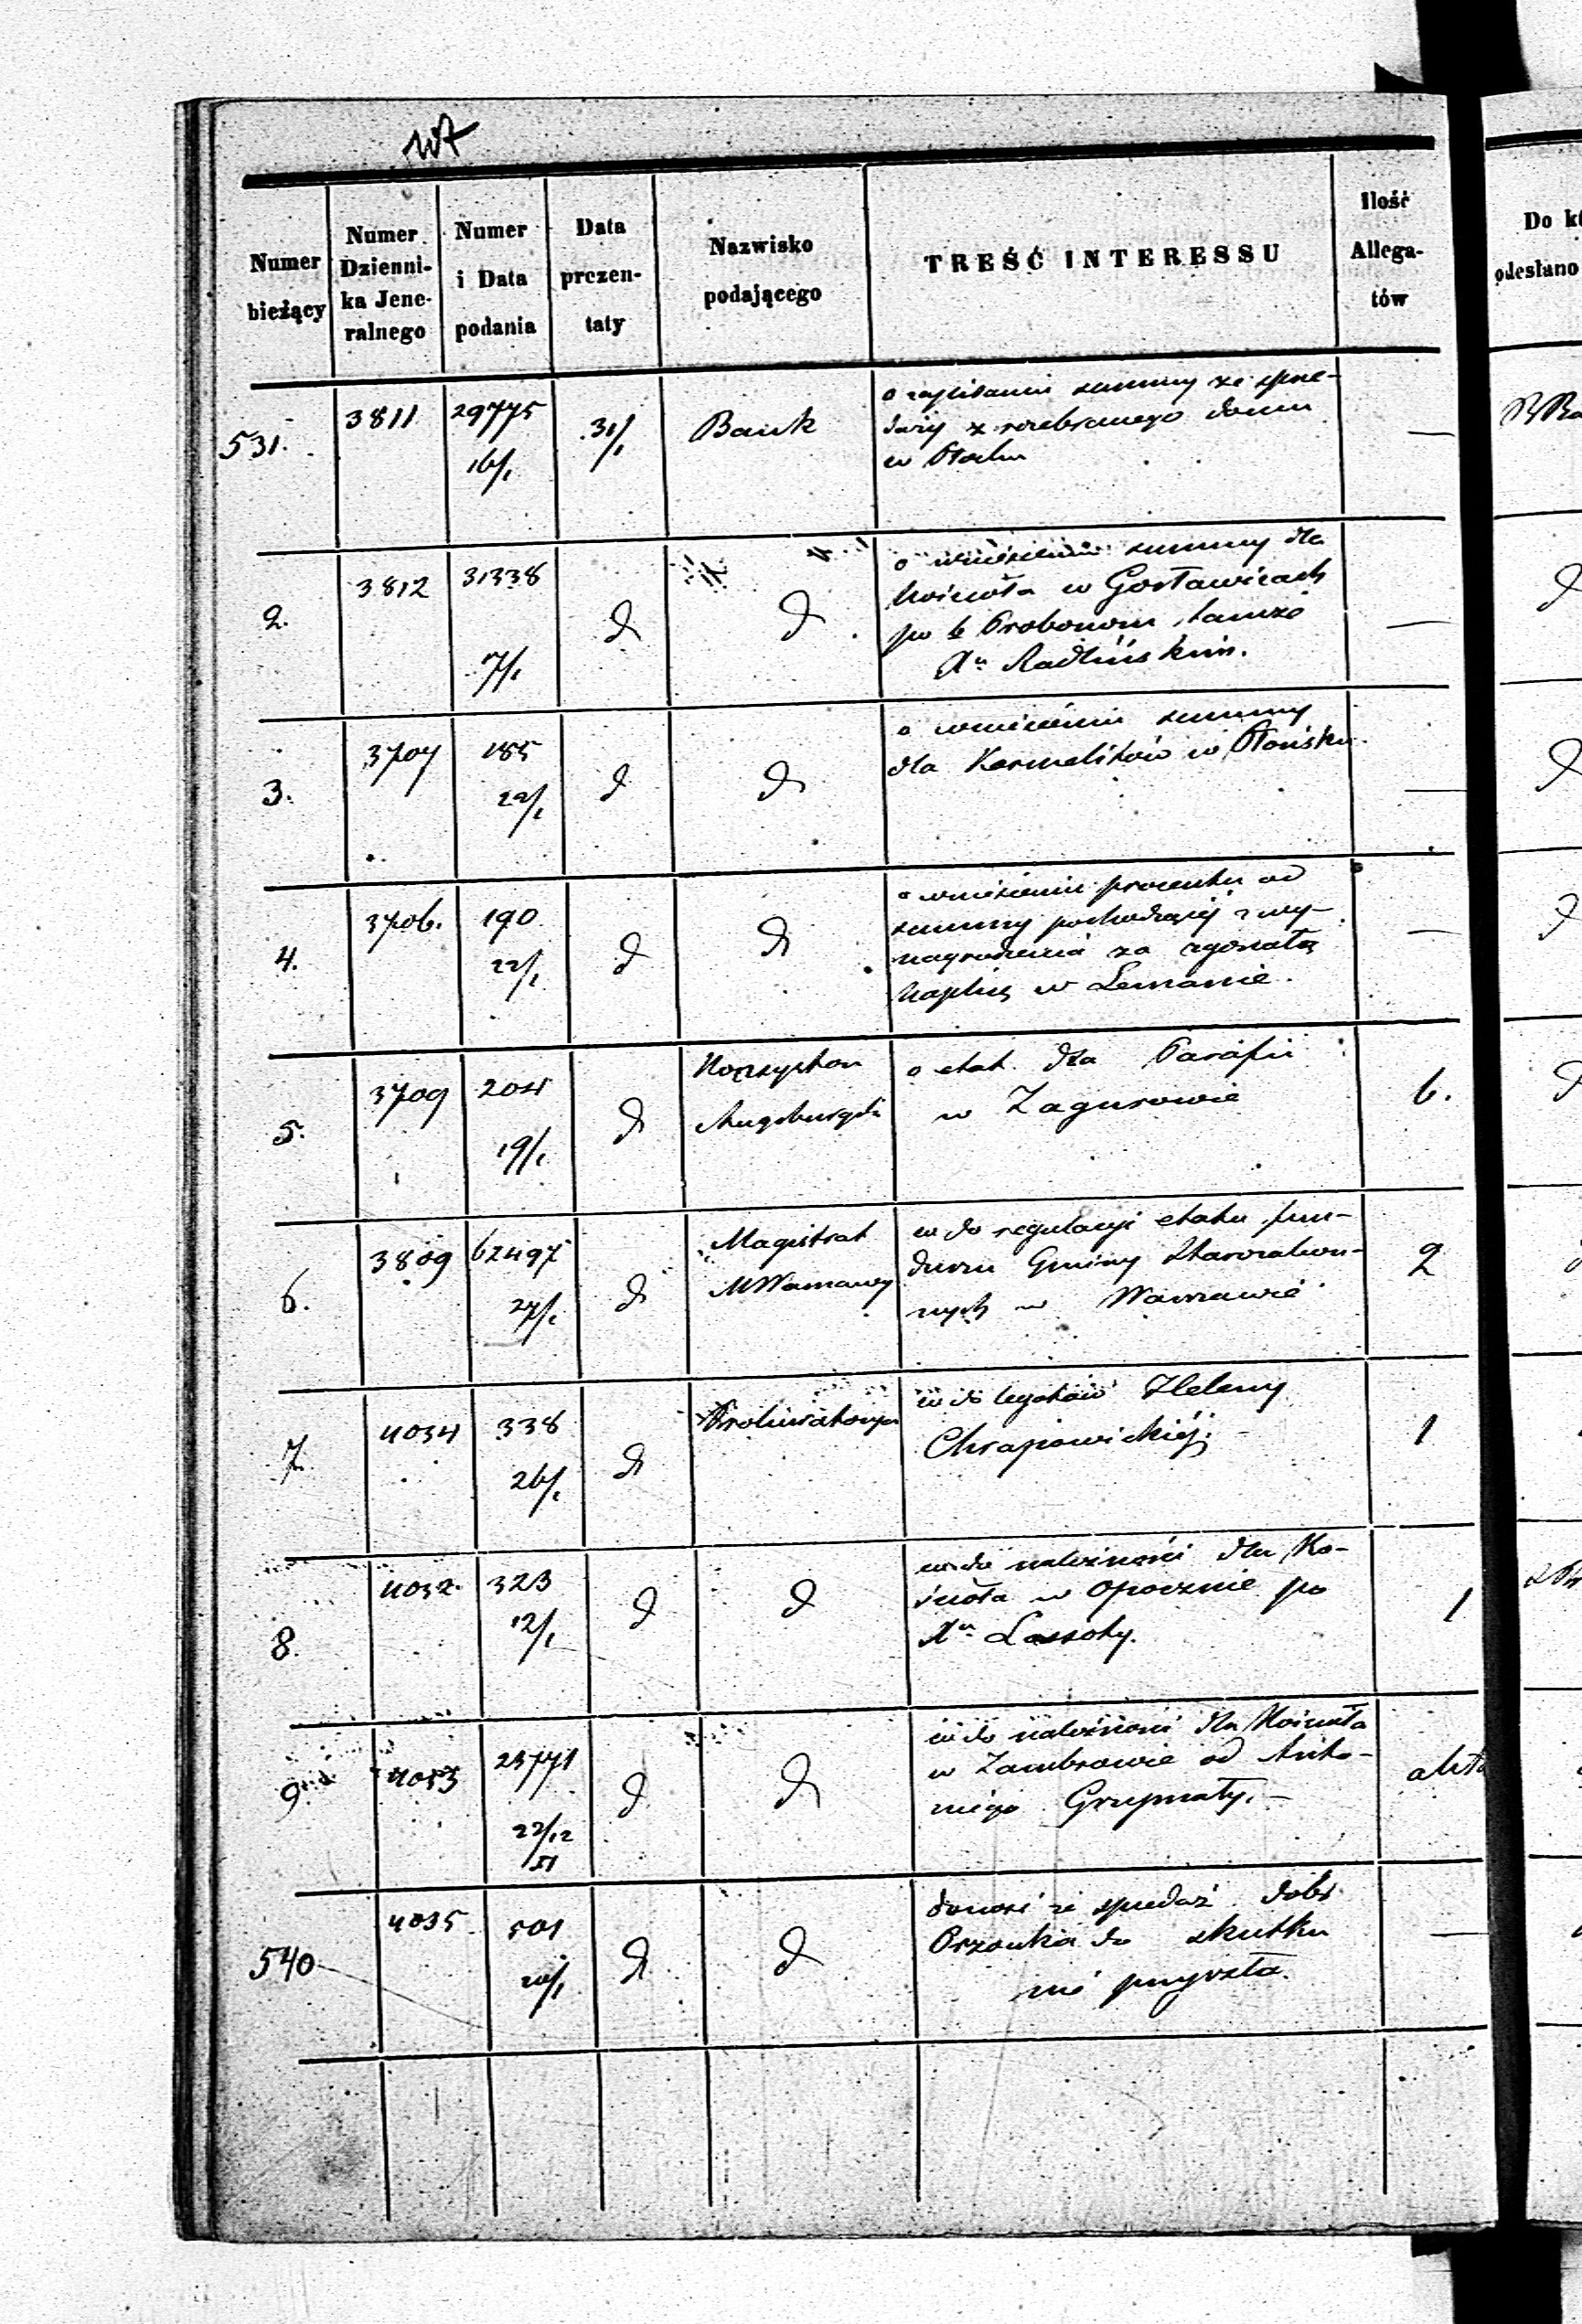 Numer bieżący
Numer Dzienni- ka Jene- ralnego
Numer i Data podania
Data prezen- taty
Nazwisko podającego
TREŚĆ INTERESSU
Ilość Allega- tów
Do
odesłano
531.
3811
29775
16/1
31/1
Bank
o zapisanie summy ze sprze-
daży z rozebranego domu
w Płocku
—
2.
3812
31338
7/1
d
d
o wniesieniu summy dla
Kościoła w Gosławicach
po b Proboszczu tamże
Xu Radlińskim.
—
3.
3707
185
22/1
d
d
o wniesieniu summy
dla Karmelitów w Płońsku
—
4.
3706.
190
22/1
d
d
o wniesieniu procentu od
summy pochodzącej z wy-
nagrodzenia za zgorzałą
Kaplicę w Lemanie.
—
5.
3709
204
19/1
d
Konsystorz
Augsburgski
o etat dla Parafii
w Zagurowie
6.
6.
3809
62497
27/1
d
Magistrat
MWarszawy
w do regulacyi etatu fun-
duszu Gminy Starozakon-
nych w Warszawie
2
7.
4034
338
26/1
d
w do legatów Heleny
Chrapowickiéj.
1
8.
4032.
323
12/1
d
d
w do należności dla Ko-
ścioła w Opocznie po
Xu Lassoty.
1
9.
4033
25771
22/12
51
d
d
w do należności dla Kościoła
w Zambrowie od Anto-
niego Grzymały. —
akta
540
4035
501
20/1
d
d
donosi że sprzedaż dobr
do skutku
nie przyszła.
—